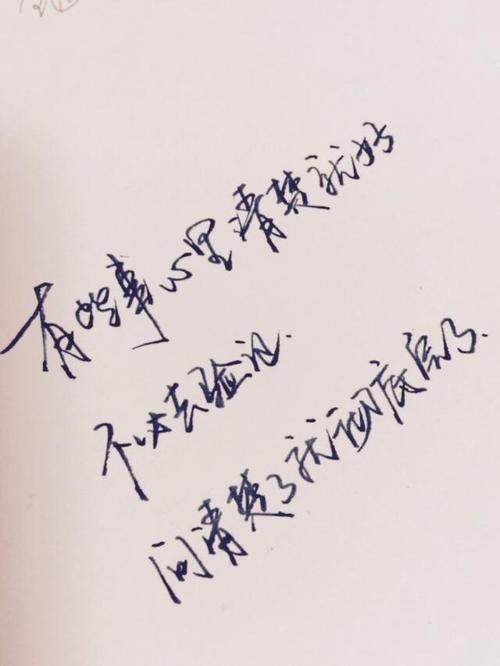 有些事心里清楚就好
不必去验证
问清楚了就彻底底了